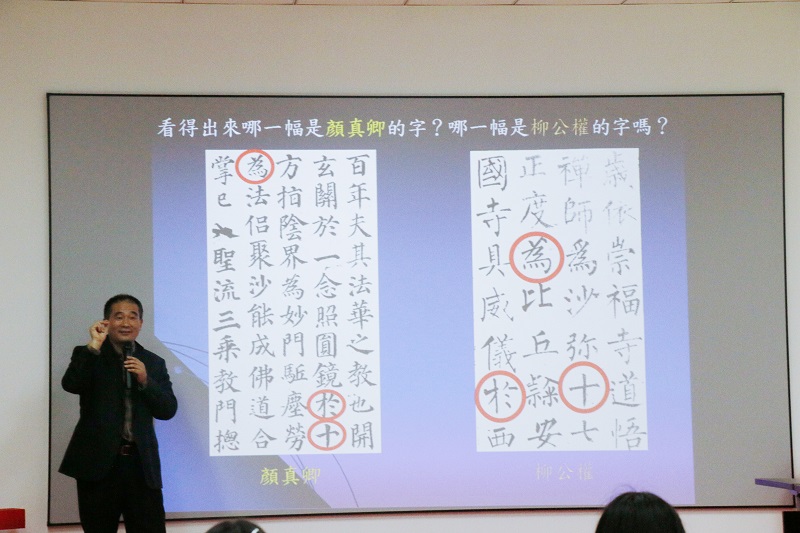 看得出來哪一幅是顏真卿的字？哪一幅是柳公權的字嗎？
百年夫其法華之教也開
玄關於一念照圓鏡於十
方指陰界為妙門駈塵勞
為法侶聚沙能成佛道合
掌已入聖流三乘教門揔
顏真卿
歲依崇福寺道悟
禪師為沙弥十七
正度為比丘隸安
國寺具威儀於西
柳公權